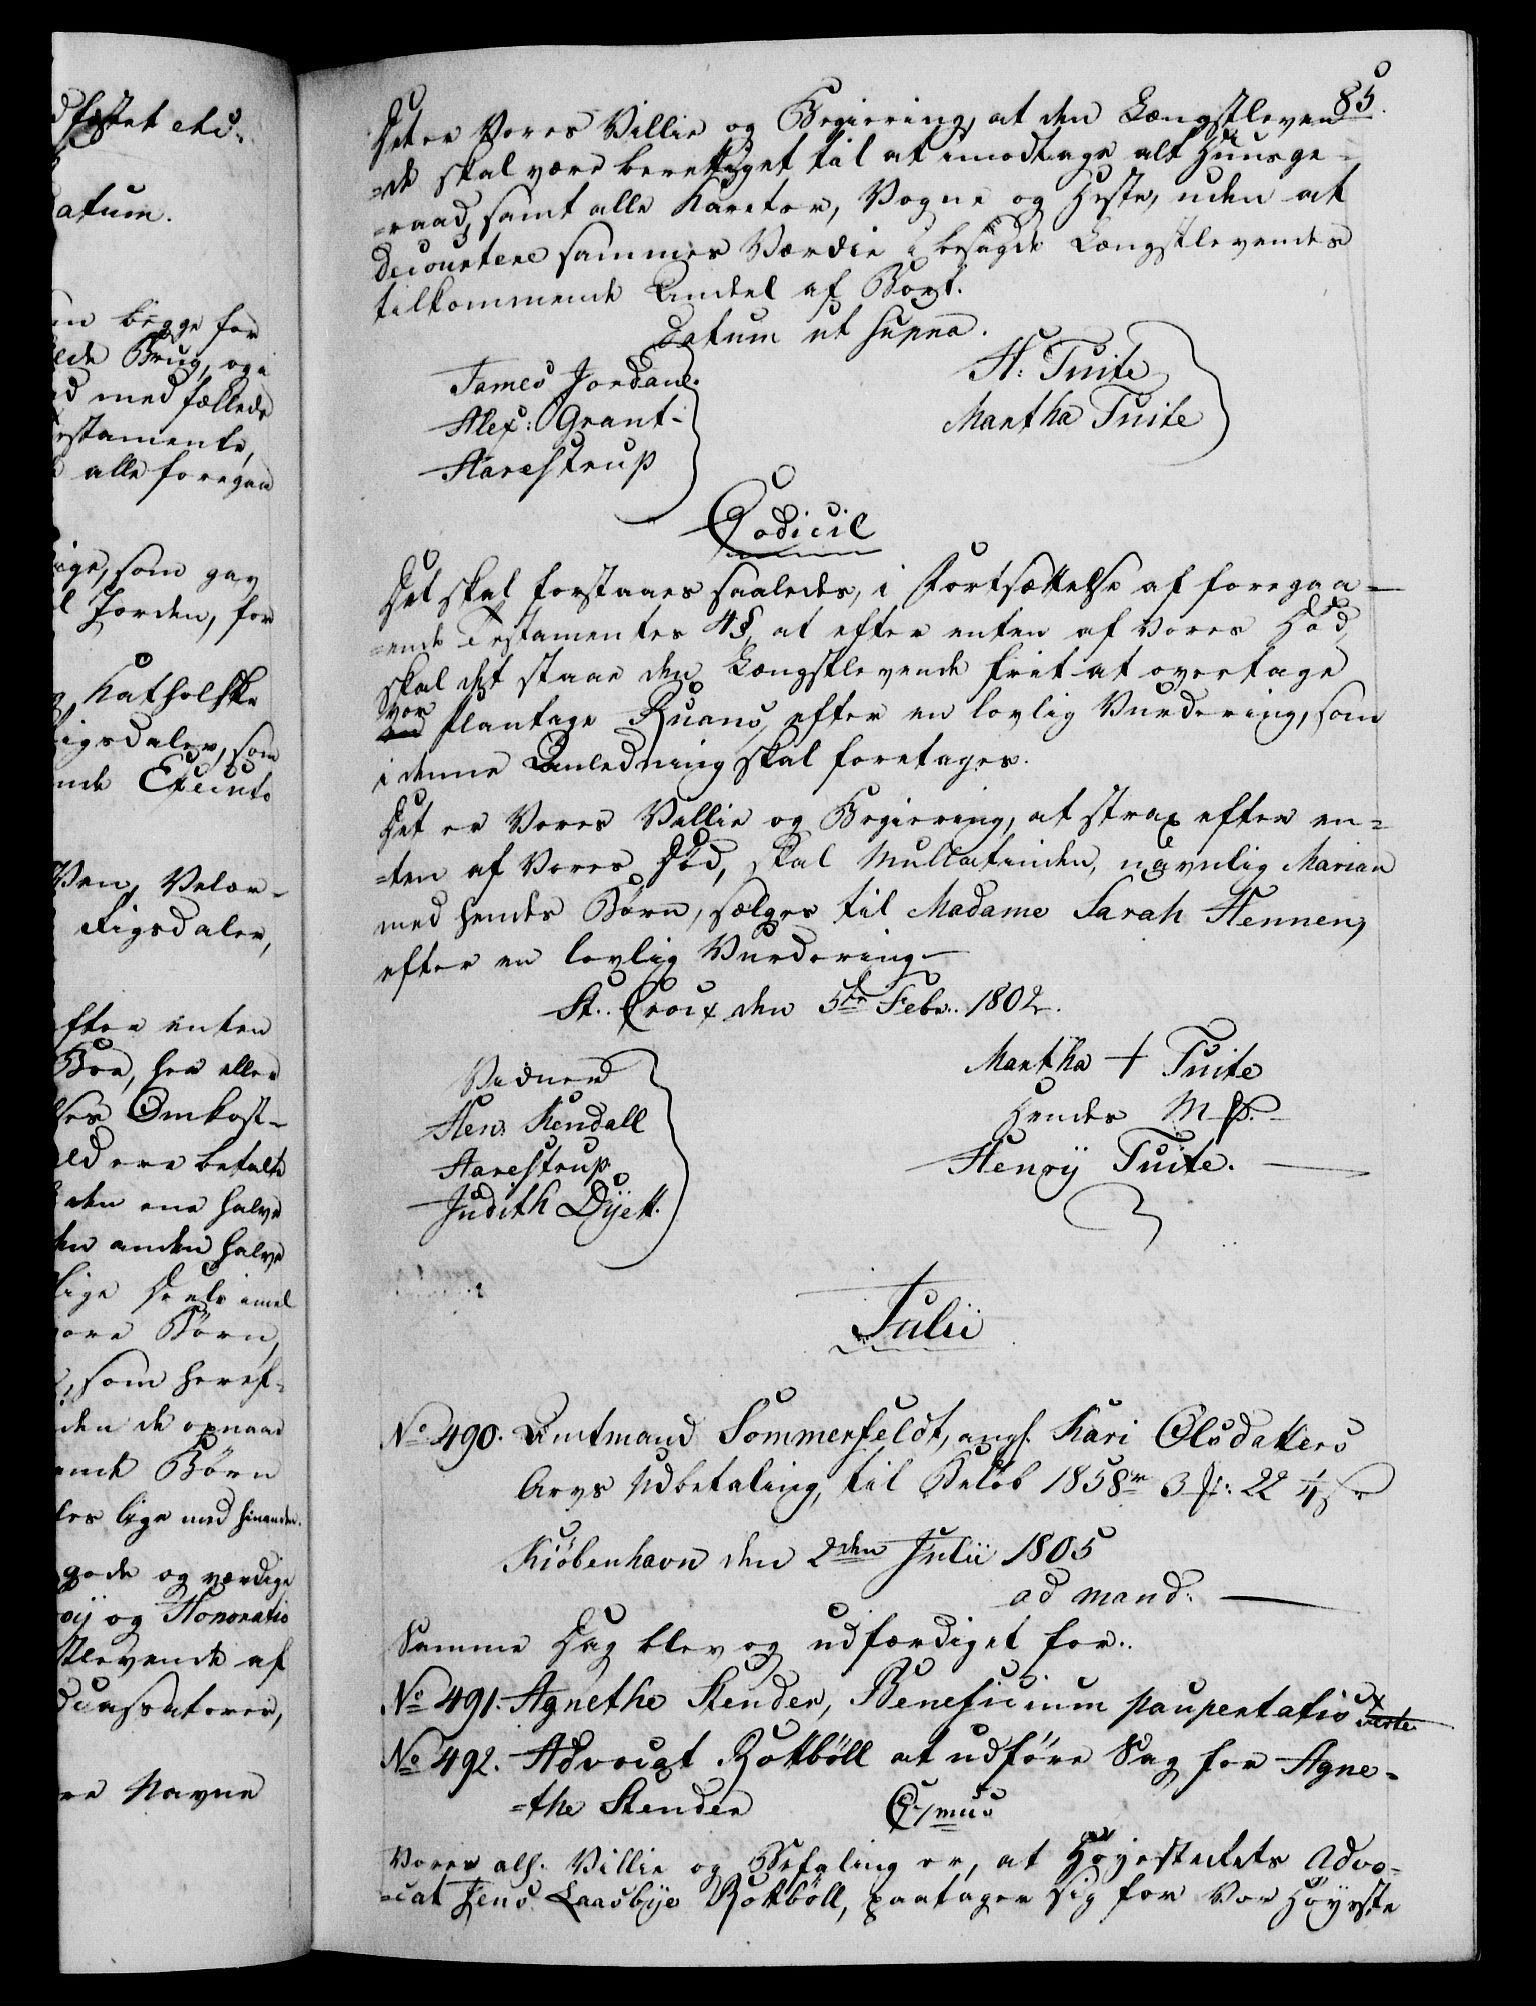 dfæstet etc:
atum.
en begge for
lede Brug, og i
ed med fælleds
estamente,
alle foregaa
ige, som gav
l Jorden, for
Katholske
Rigsdaler, som
ende Executo
Ven, Velær-
Rigsdaler,
efter enten
Boe, her eller
ses Omkost-
eld ere betalte
den ene halve
den anden halve
lige Deele imel
vore Børn,
som heref-
iden de opnaae
ende Børn
les lige med hinanden.
gode og værdige
og Honoratio
stlevende af
Navne
85.
Det er Vores Villie og Begiering, at den Længstleven
=de skal være berettiget til at imodtage alt Huusge-
=raad, samt alle Kareter, Vogne og Heste, uden at
decourtere sammes Værdie i besagde Længstlevendes
tilkommende Andel af Boet.
Datum ut supra.
James Jordan.
Alex: Grant-
Aarestrup
H: Tuite
Martha Tuite
Codicil
Det skal forstaaes saaledes, i Fortsættelse af foregaa-
=ende Testamentes 4§, at efter enten af Vores Død,
skal det staae den Længstlevende frit at overtage
vor
en Plantage Ruans, efter en lovlig Vurdering, som
i denne Anledning skal foretages.
Det er Vores Villie og Begiering, at strax efter en=
=ten af Vores Død, skal Mullatinden, navnlig Marian
med hendes Børn, sælges til Madame Sarah Hennen,
efter en lovlig Vurdering-
St. Croix den 5te Febr. 1802.
Vidner
Hen: Kendall
Aarestrup
Judith Dÿett.
Martha + Tuite
Hendes M P.
Henrÿ Tuite.
Julii
No 490. Amtmand Sommerfeldt, angl. Kari Olsdatters
Arvs Udbetaling, til Beløb 1858 3 22 1/4
Kiöbenhavn den 2den Julii 1805
ad mand:
Samme Dag blev og udfærdiget for..
No 491. Agnethe Stender, Beneficium paupertatis
No 492. Advocat Rottböll at udföre Sag for Agne-
=the Stender
Vores alh. Villie og Befaling er, at Höyesterets Advo-
=cat Jens Laasbÿe Rottböll, paatager sig for Vor Höÿeste